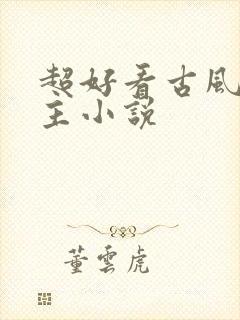 超好看古風
主小說
董雲虎